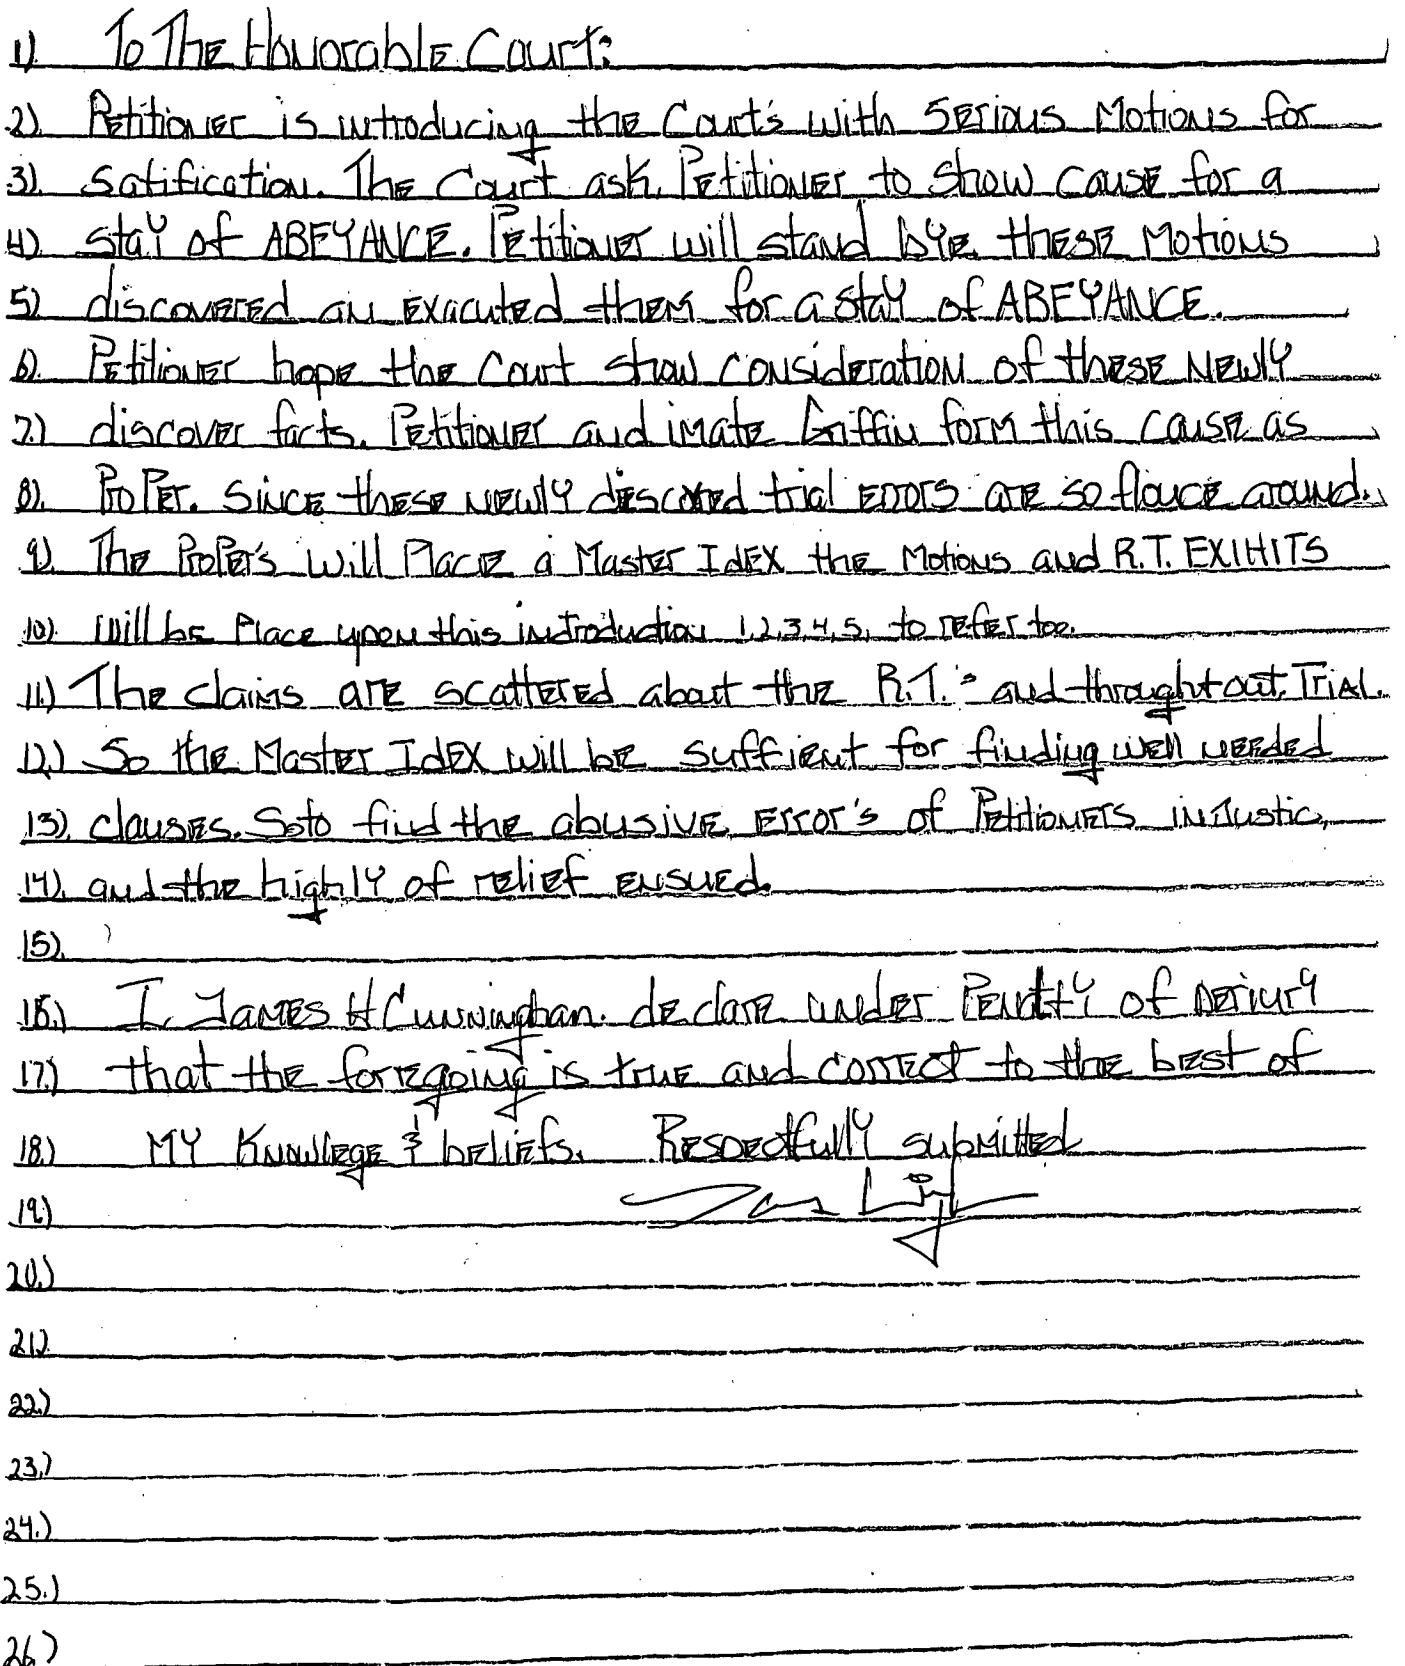 1). To The Honorable Court:
2). Petitioner is introducing the Court's with serious Motions for
3). satification. The Court ask Petitioner to show cause for a
4). stay of ABEYANCE. Petitioner will stand bye these Motions
5). discovered an exacuted them for a stay of ABEYANCE.
6). Petitioner hope the Court show consideration of these Newly
7.) discover facts. Petitioner and imate Griffin form this cause as
8). ProPer. Since these newly trial errors are so around.
9). The ProPer's will Place a Master Idex the Motions and R.T. EXIHITS
10). will be Place upon this introduction 1,2,3,4,5, to refer too.
11.) The claims are scattered about the R.T.'s and throught out Trial.
12.) So the Master Idex will be suffient for finding well needed
13). clauses. Soto find the abusive error's of Petitioners injustic,
14). and the highly of relief ensued.
15).
16.) I, James H Cunningham. declare under of perjury
17.) that the foregoing is true and correct to the best of
18.) MY Knowlege & beliefs. Respectfully submitted
19.)
20.)
21.)
22.)
23.)
24.)
25.)
26.)